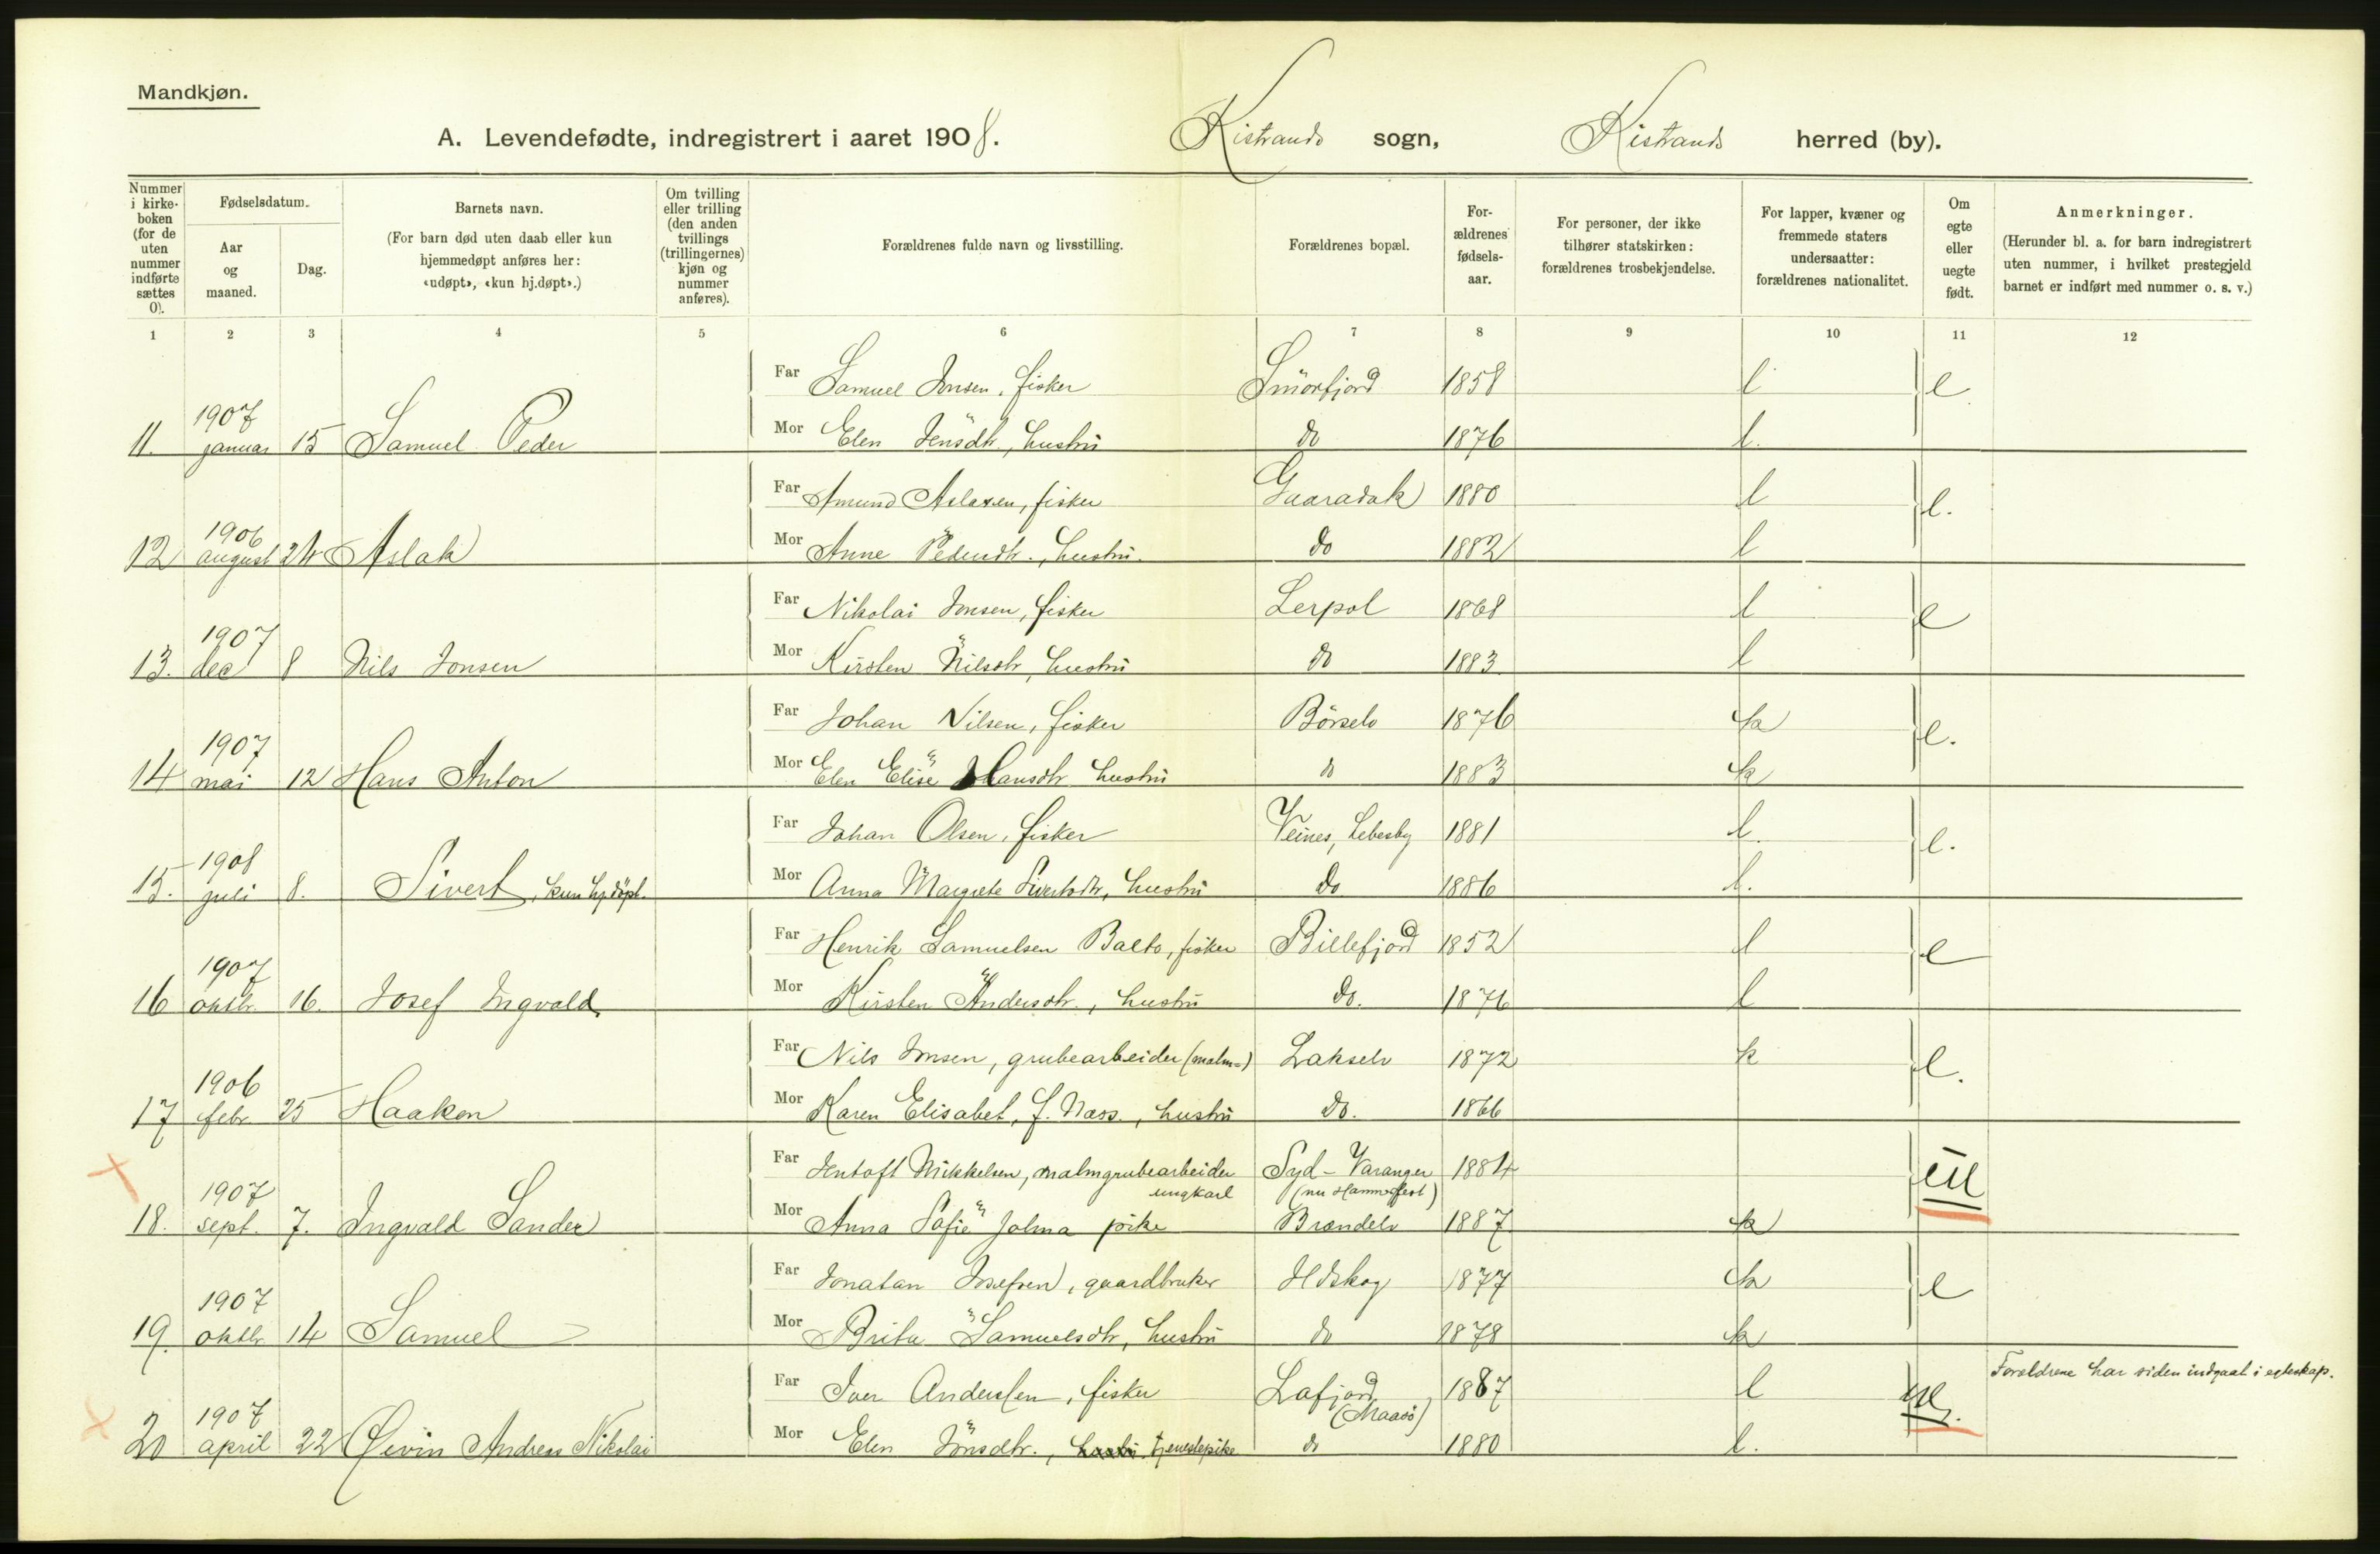 Mandkjøn.
A. Levendefødte, indregistrert i aaret 1908. Kistrands sogn, Kistrands herred (by).
Nummer i kirkeboken (for de uten nummer indførte sættes 0).
Fødselsdatum.
Aar og maaned.
Dag.
Barnets navn.
(For barn død uten daab eller kun hjemmedøpt anføres her: «udøpt», «kun hj.døpt».)
Om tvilling eller trilling (den anden tvillings (trillingernes) kjøn og nummer anføres).
Forældrenes fulde navn og livsstilling.
Forældrenes bopæl.
For-ældrenes fødsels-aar.
For personer, der ikke tilhører statskirken: forældrenes trosbekjendelse.
For lapper, kvæner og fremmede staters undersaatter: forældrenes nationalitet.
Om egte eller uegte født.
Anmerkninger.
(Herunder bl. a. for barn indregistrert uten nummer, i hvilket prestegjeld barnet er indført med nummer o. s. v.)
1 2 3 4 5 6 7 8 9 10 11 12
Far Samuel Jonsen, fisker Smörfjord 1858 l e
11. 1907 januar 15 Samuel Peder Mor Elen Jensdtr., hustru do 1876 l.
Far Amund Aslaxen, fisker Guaradak 1880 l e.
12 1906 august 24 Aslak Mor Anne Pedersdtr., hustru. do 1882 l
Far Nikolai Jonsen, fisker Lerpol 1868 l e
13. 1907 dec 8 Nils Jonsen Mor Kirsten Nilsdtr, hustru do 1883 l
Far Johan Nilsen, fisker Börselv 1876 k e.
14 1907 mai 12 Hans Anton Mor Elen Elise Hansdtr hustru do 1883 k
Far Johan Olsen, fisker Veines, Lebesby 1881 l. e.
15. 1908 juli 8. Sivert, kun hj.döpt. Mor Anna Margrete Sivertsdtr, hustru do 1886 l.
Far Henrik Samuelsen Balto, fisker Billefjord 1852 l e
16 1907 oktbr. 16. Josef Ingvald Mor Kirsten Andersdtr., hustru do. 1876 l
Far Nils Jonsen, grubearbeider (malm-) Lakselv 1872 k e.
17 1906 febr 25 Haakon Mor Karen Elisabet, f. Næss., hustru do. 1866
Far Jentoft Mikkelsen, malmgrubearbeider ungkarl Syd-Varanger (nu Hammerfest) 1884 ue
18. 1907 sept. 7. Ingvald Sander Mor Anna Sofie Jolma pike Brændelv 1887 k
Far Jonatan Josefsen, gaardbruker Udskog 1877 k e
19. 1907 oktbr 14 Samuel Mor Brita Samuelsdtr, hustru do 1878 k
Far Iver Andersen, fisker Lafjord (Maasö) 1887 l ue. Foreldrene har siden indgaat i egteskap.
20 1907 april 22 Øivin Andreas Nikolai Mor Elen Jonsdtr., hustru tjenestepike do 1880 l.